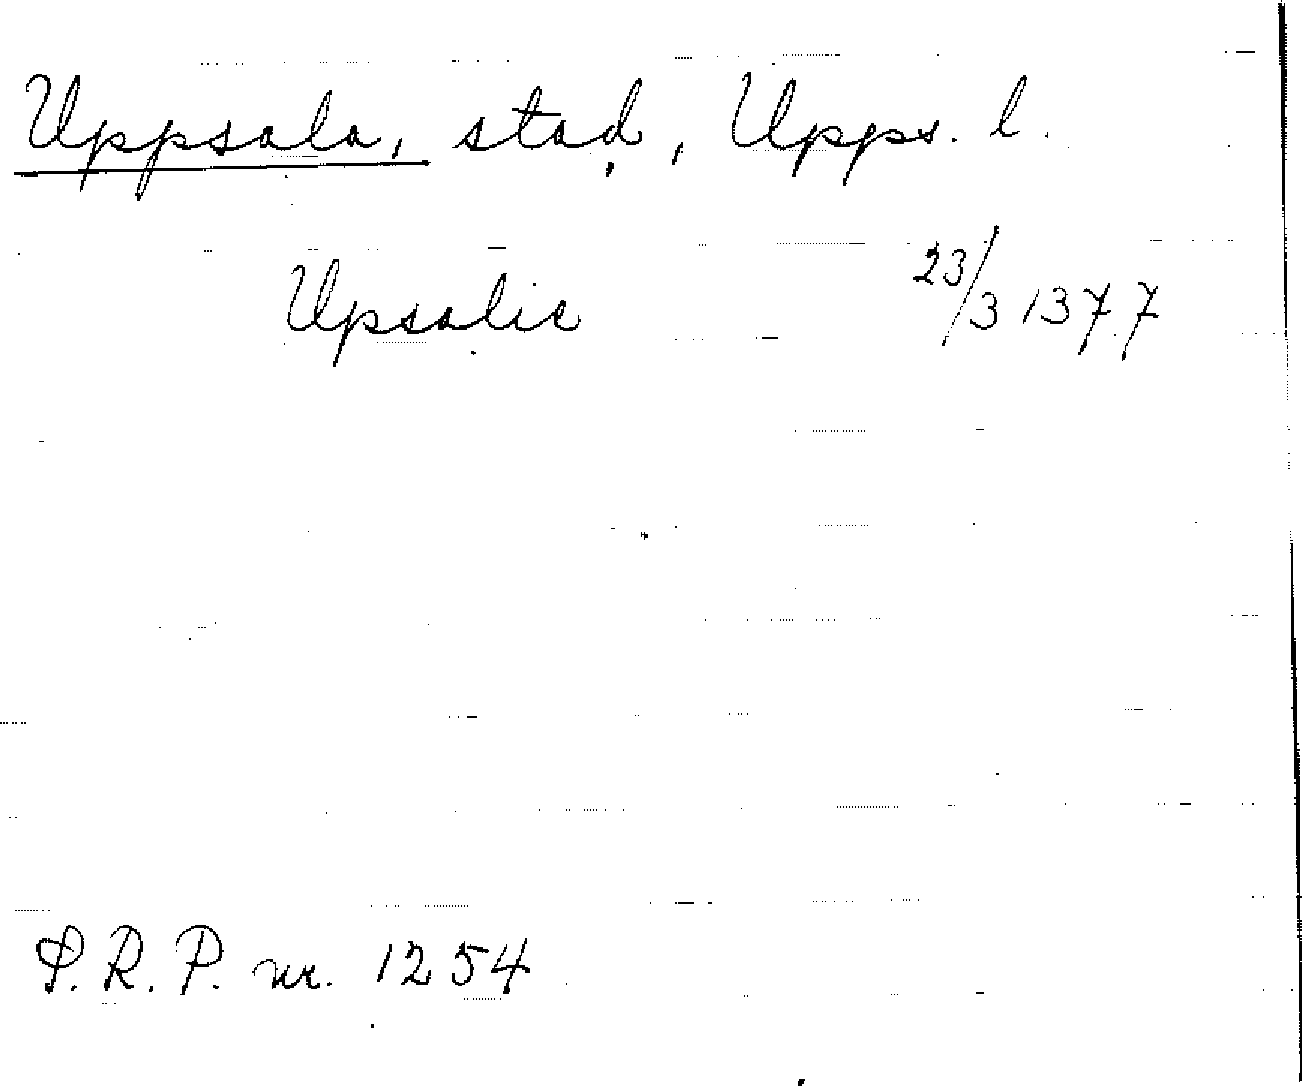 Uppsala, stad, Upps. l.
Upsalie 23/3 1377
S.R.P. nr. 1254